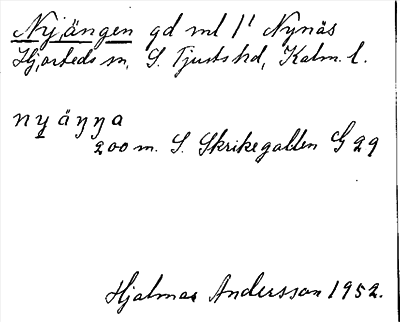 Nyängen gd ml 1' Nynäs
Hjorteds sn, S. Tjusts hd, Kalm. l.
nyäŋŋa
200 m. S. Skrikegallen G 29
Hjalmar Andersson 1952.